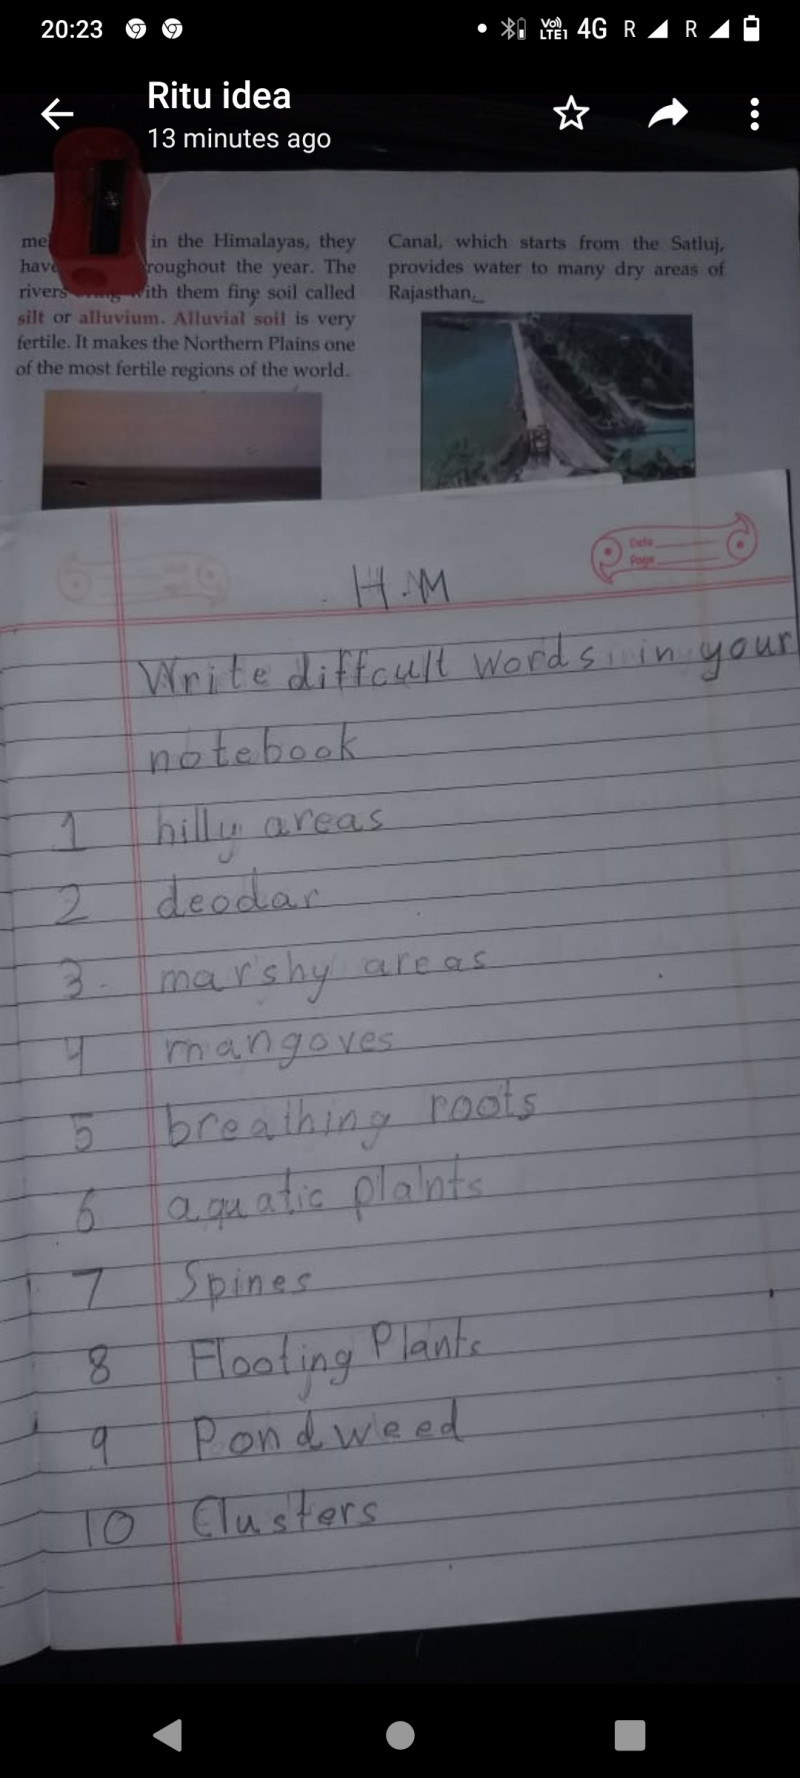 20:23
Vo)) LTE1 4G R R
Ritu idea
13 minutes ago
in the Himalayas, they
have roughout the year. The
rivers with them fine soil called
silt or alluvium. Alluvial soil is very
fertile. It makes the Northern Plains one
of the most fertile regions of the world.
Canal, which starts from the Satluj,
provides water to many dry areas of
Rajasthan.
Date
Page
H.M
Write diffcult words in your
notebook
1 hilly areas
2 deodar
3. marshy areas
4 mangoves
5 breathing roots
6 aquatic plants
7 Spines
8 Flooting Plants
9 Pondweed
10 Clusters